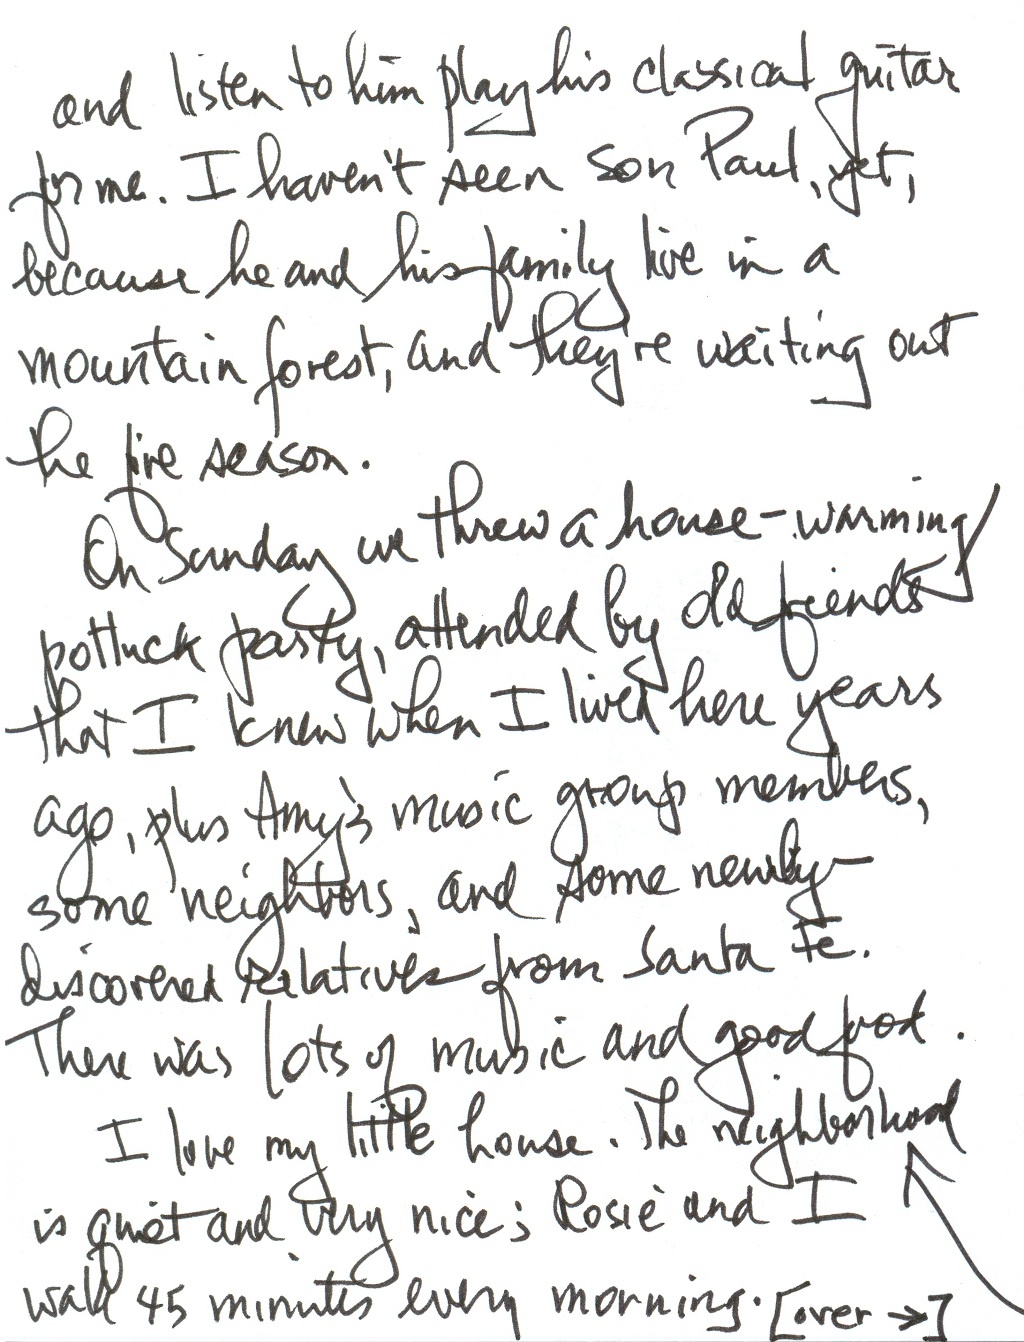 and listen to him play his classical guitar
for me. I haven't seen son Paul, yet,
because he and his family live in a
mountain forest, and they're waiting out
the fire season.
On Sunday we threw a house-warming
potluck party, attended by old friends
that I knew when I lived here years
ago, plus Amy's music group members,
some neighbors, and some newly-
discovered relatives from Santa Fe.
There was lots of music and good food.
I love my little house. The neighborhood
is quiet and very nice; Rosie and I
walk 45 minutes every morning. [over →]